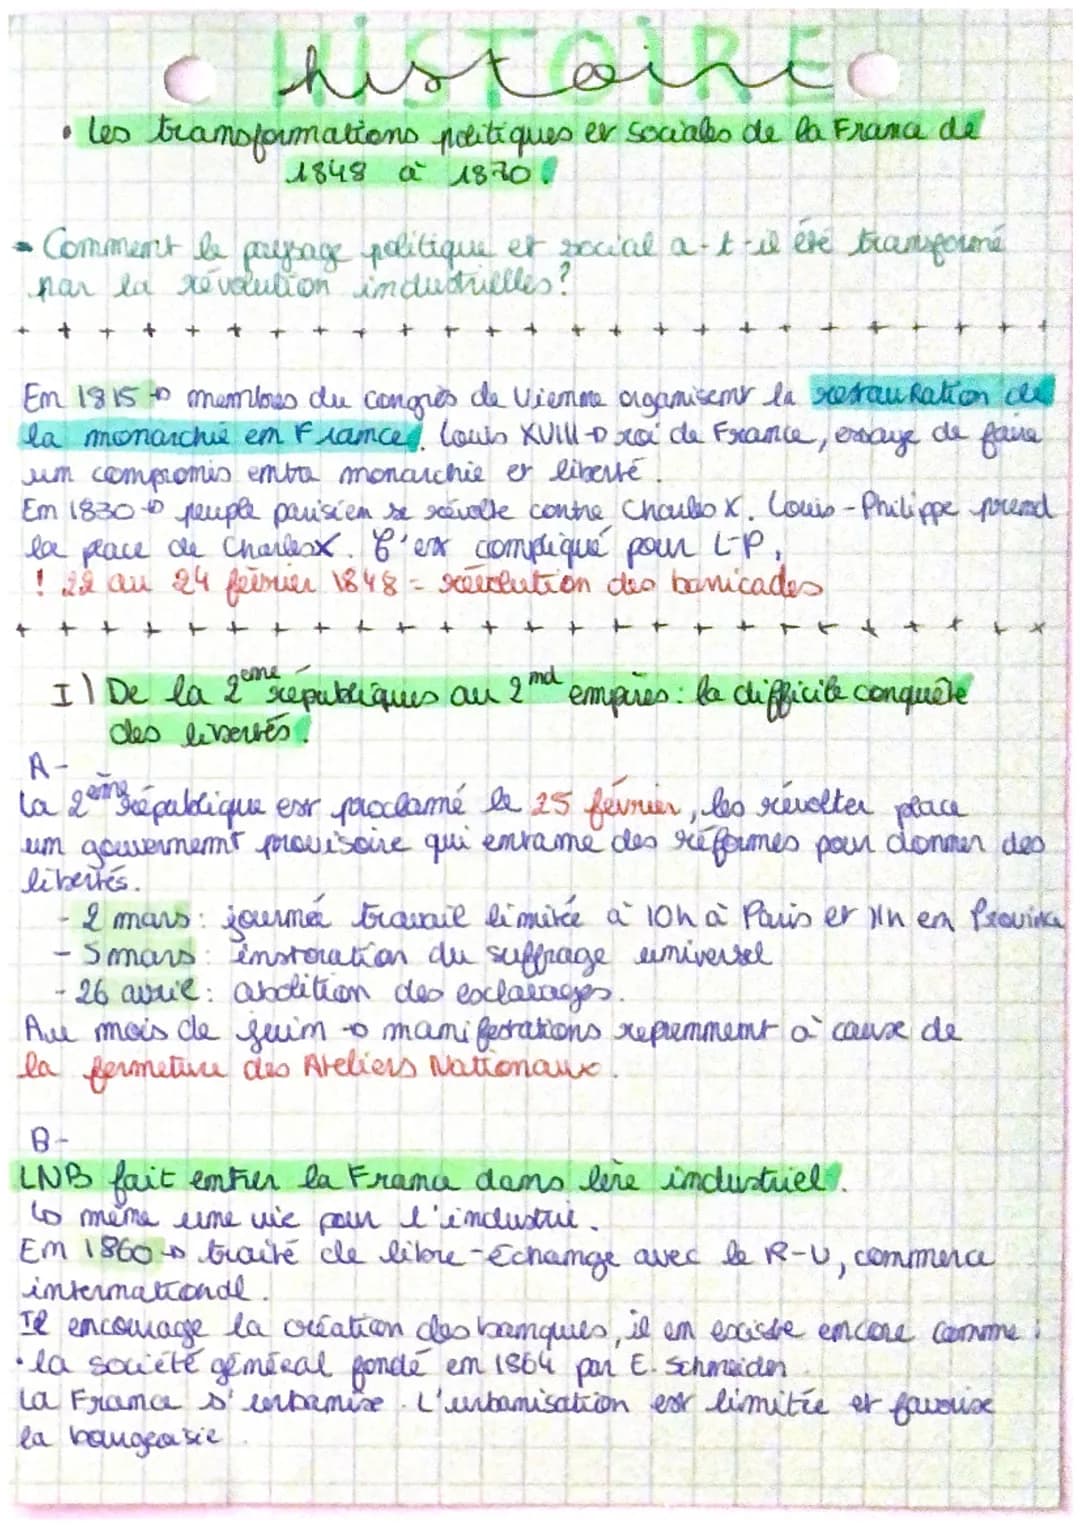 HISTOIRE
histoire
• Les transformations politiques et sociales de la France de
1848 à 1870.
- Comment le paysage politique et social a-t-il été transformé
par la révolution industrielles?
En 1815 → membres du congrès de Vienne organisent la restauration de
la monarchie en France. Louis XVIII → roi de France, essaye de faire
un compromis entre monarchie et liberté.
En 1830 → peuple parisien se révolte contre Charles X. Louis-Philippe prend
la place de Charles X. C'est compliqué pour L-P.
! 22 au 24 février 1848 = révolution des barricades
I) De la 2ème républiques au 2nd empires : la difficile conquête
des libertés.
A-
La 2ème République est proclamé le 25 février, les révolter place
um gouvernemnt provisoire qui entame des réformes pour donner des
libertés.
- 2 mars : journée travail limitée à 10h à Paris et 11h en Province
- 5 mars : instoration du suffrage universel
- 26 avril : abolition des esclavages.
Au mois de juin → manifestations reprennent à cause de
la fermeture des Ateliers Nationaux.
B-
LNB fait entrer la France dans l'ère industriel.
↳ mène une vie pour l'industrie.
En 1860 → traité de libre-échange avec le R-U, commerce
international.
Il encourage la création des banques, il en existe encore comme :
• la société général fondé en 1864 par E. Schneider.
La France s'urbanise. L'urbanisation est limitée et favorise
la bourgeoisie.